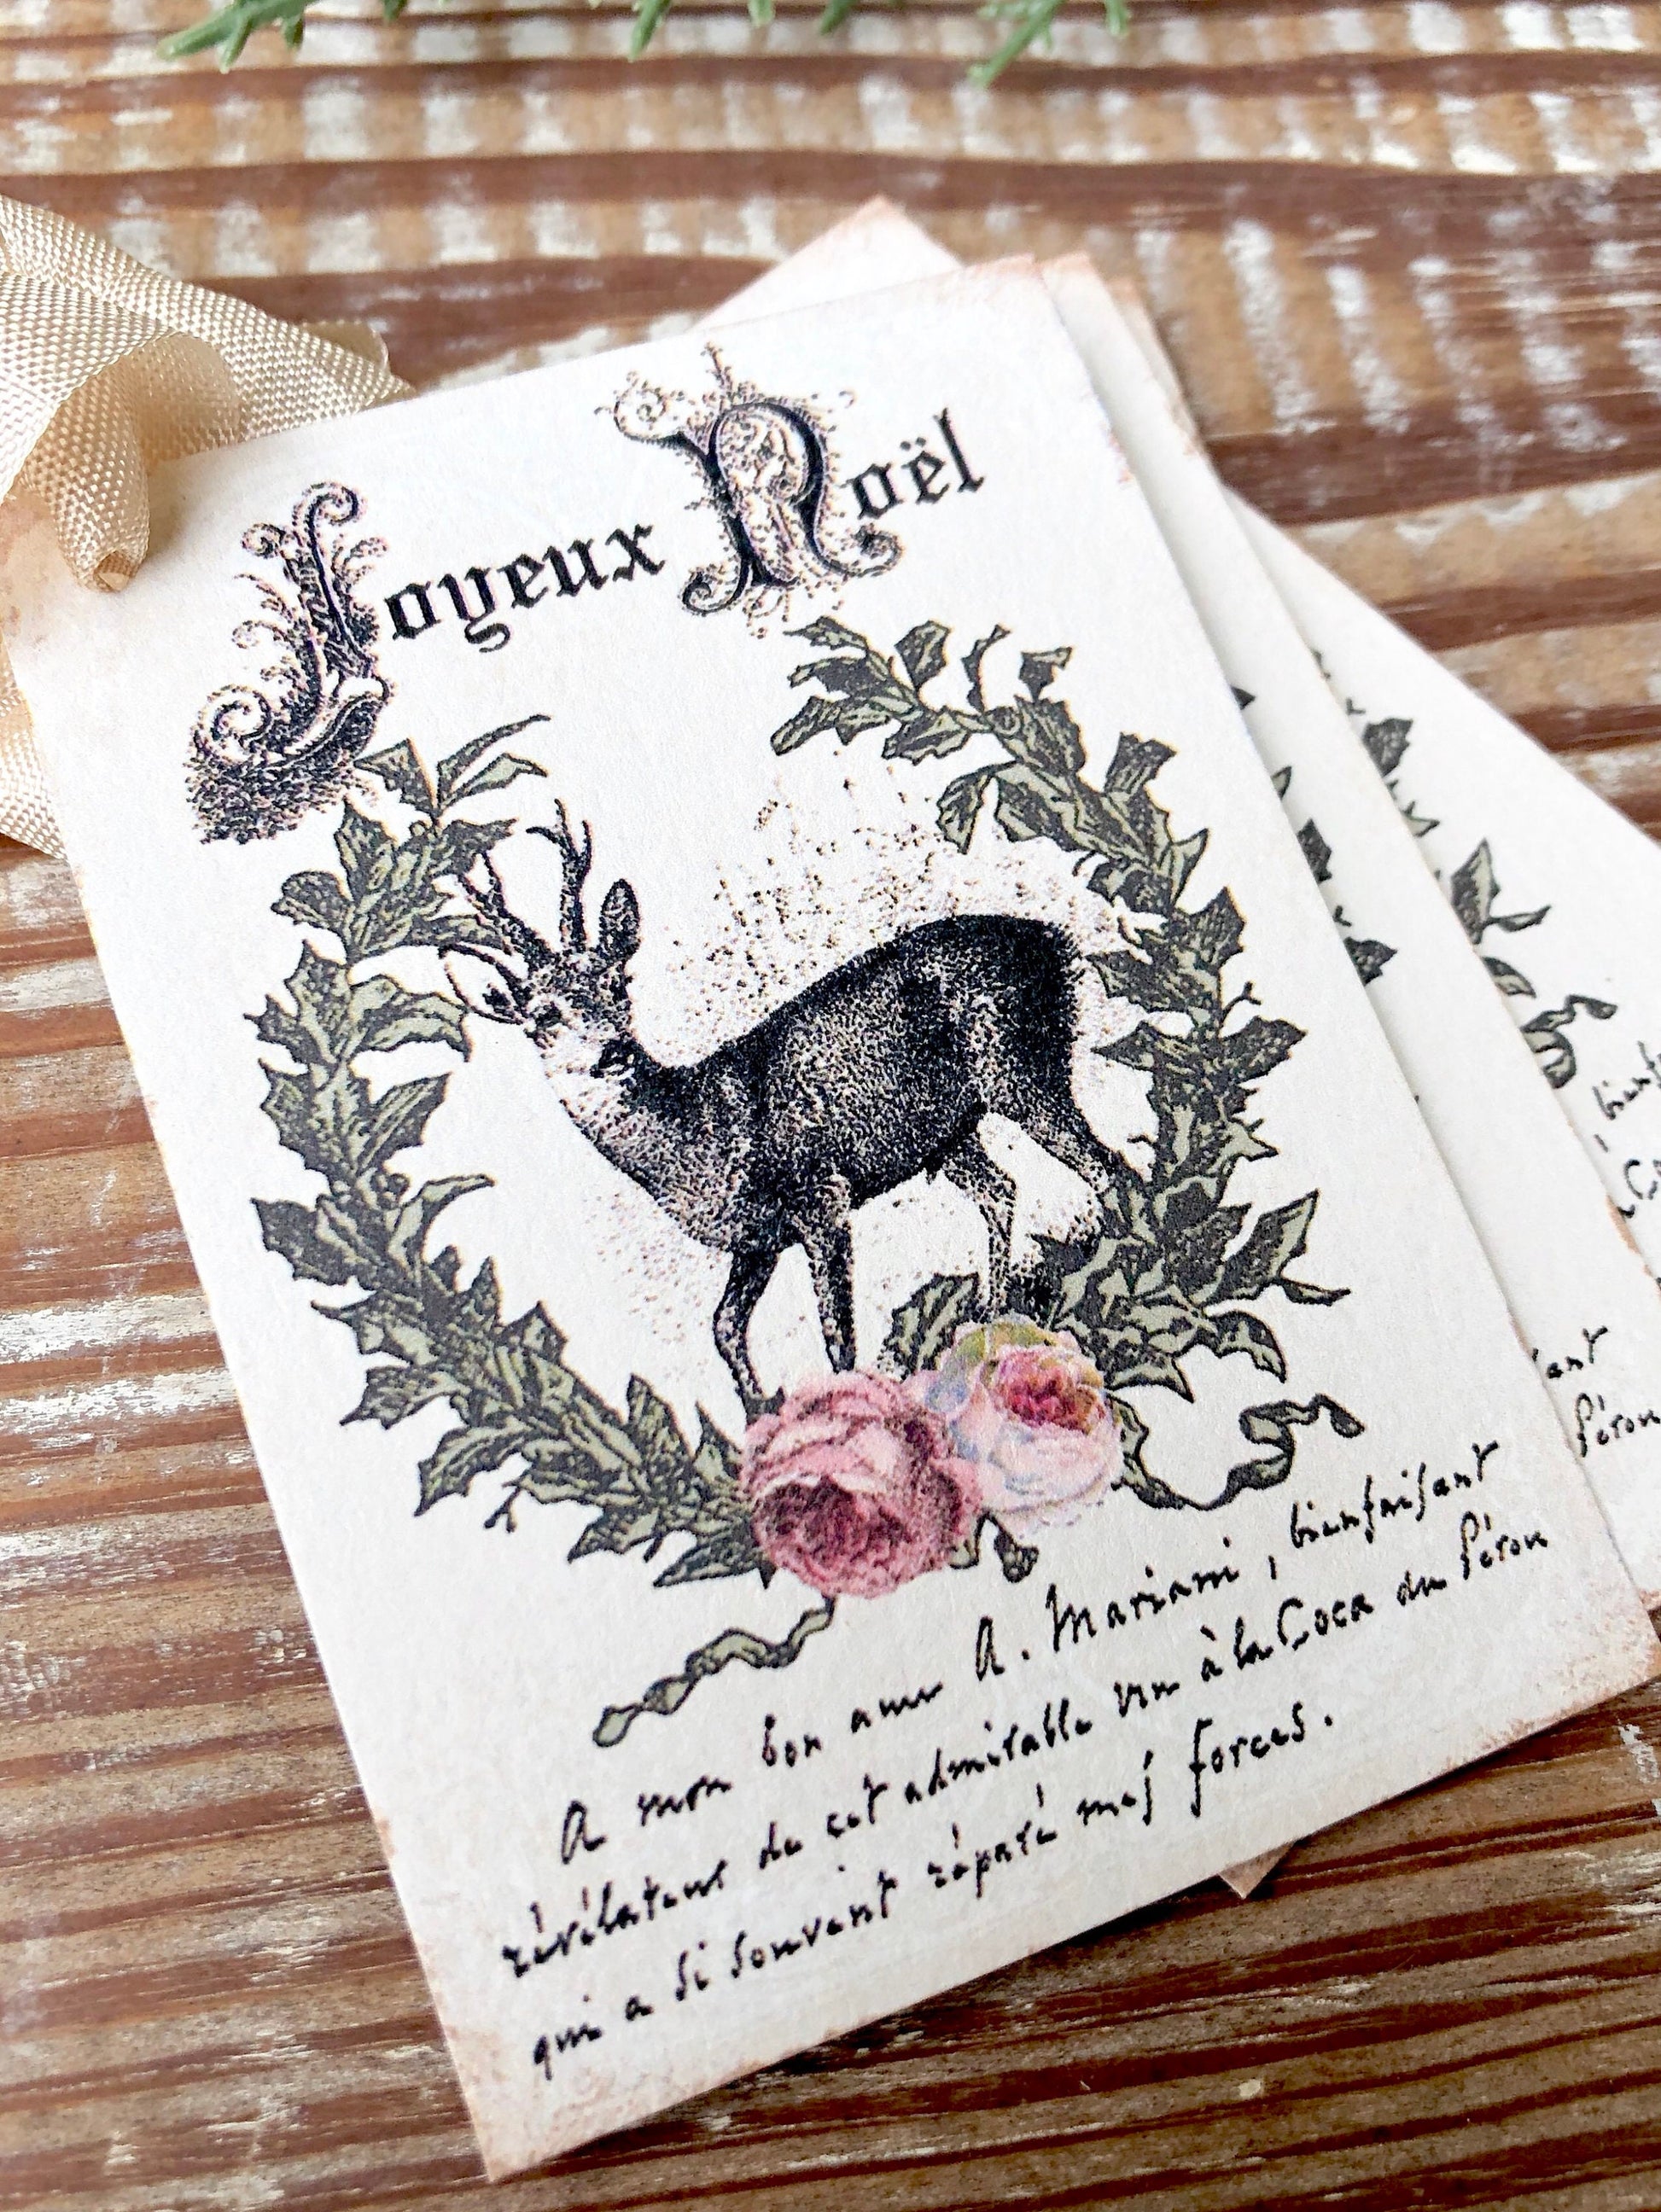 Joyeux Noël
A mon bon ami A. Mariani, bienfaisant
révélateur de cet admirable vin à la Coca du Pérou
qui a si souvent réparé mes forces.
bienf
ant
Pérou